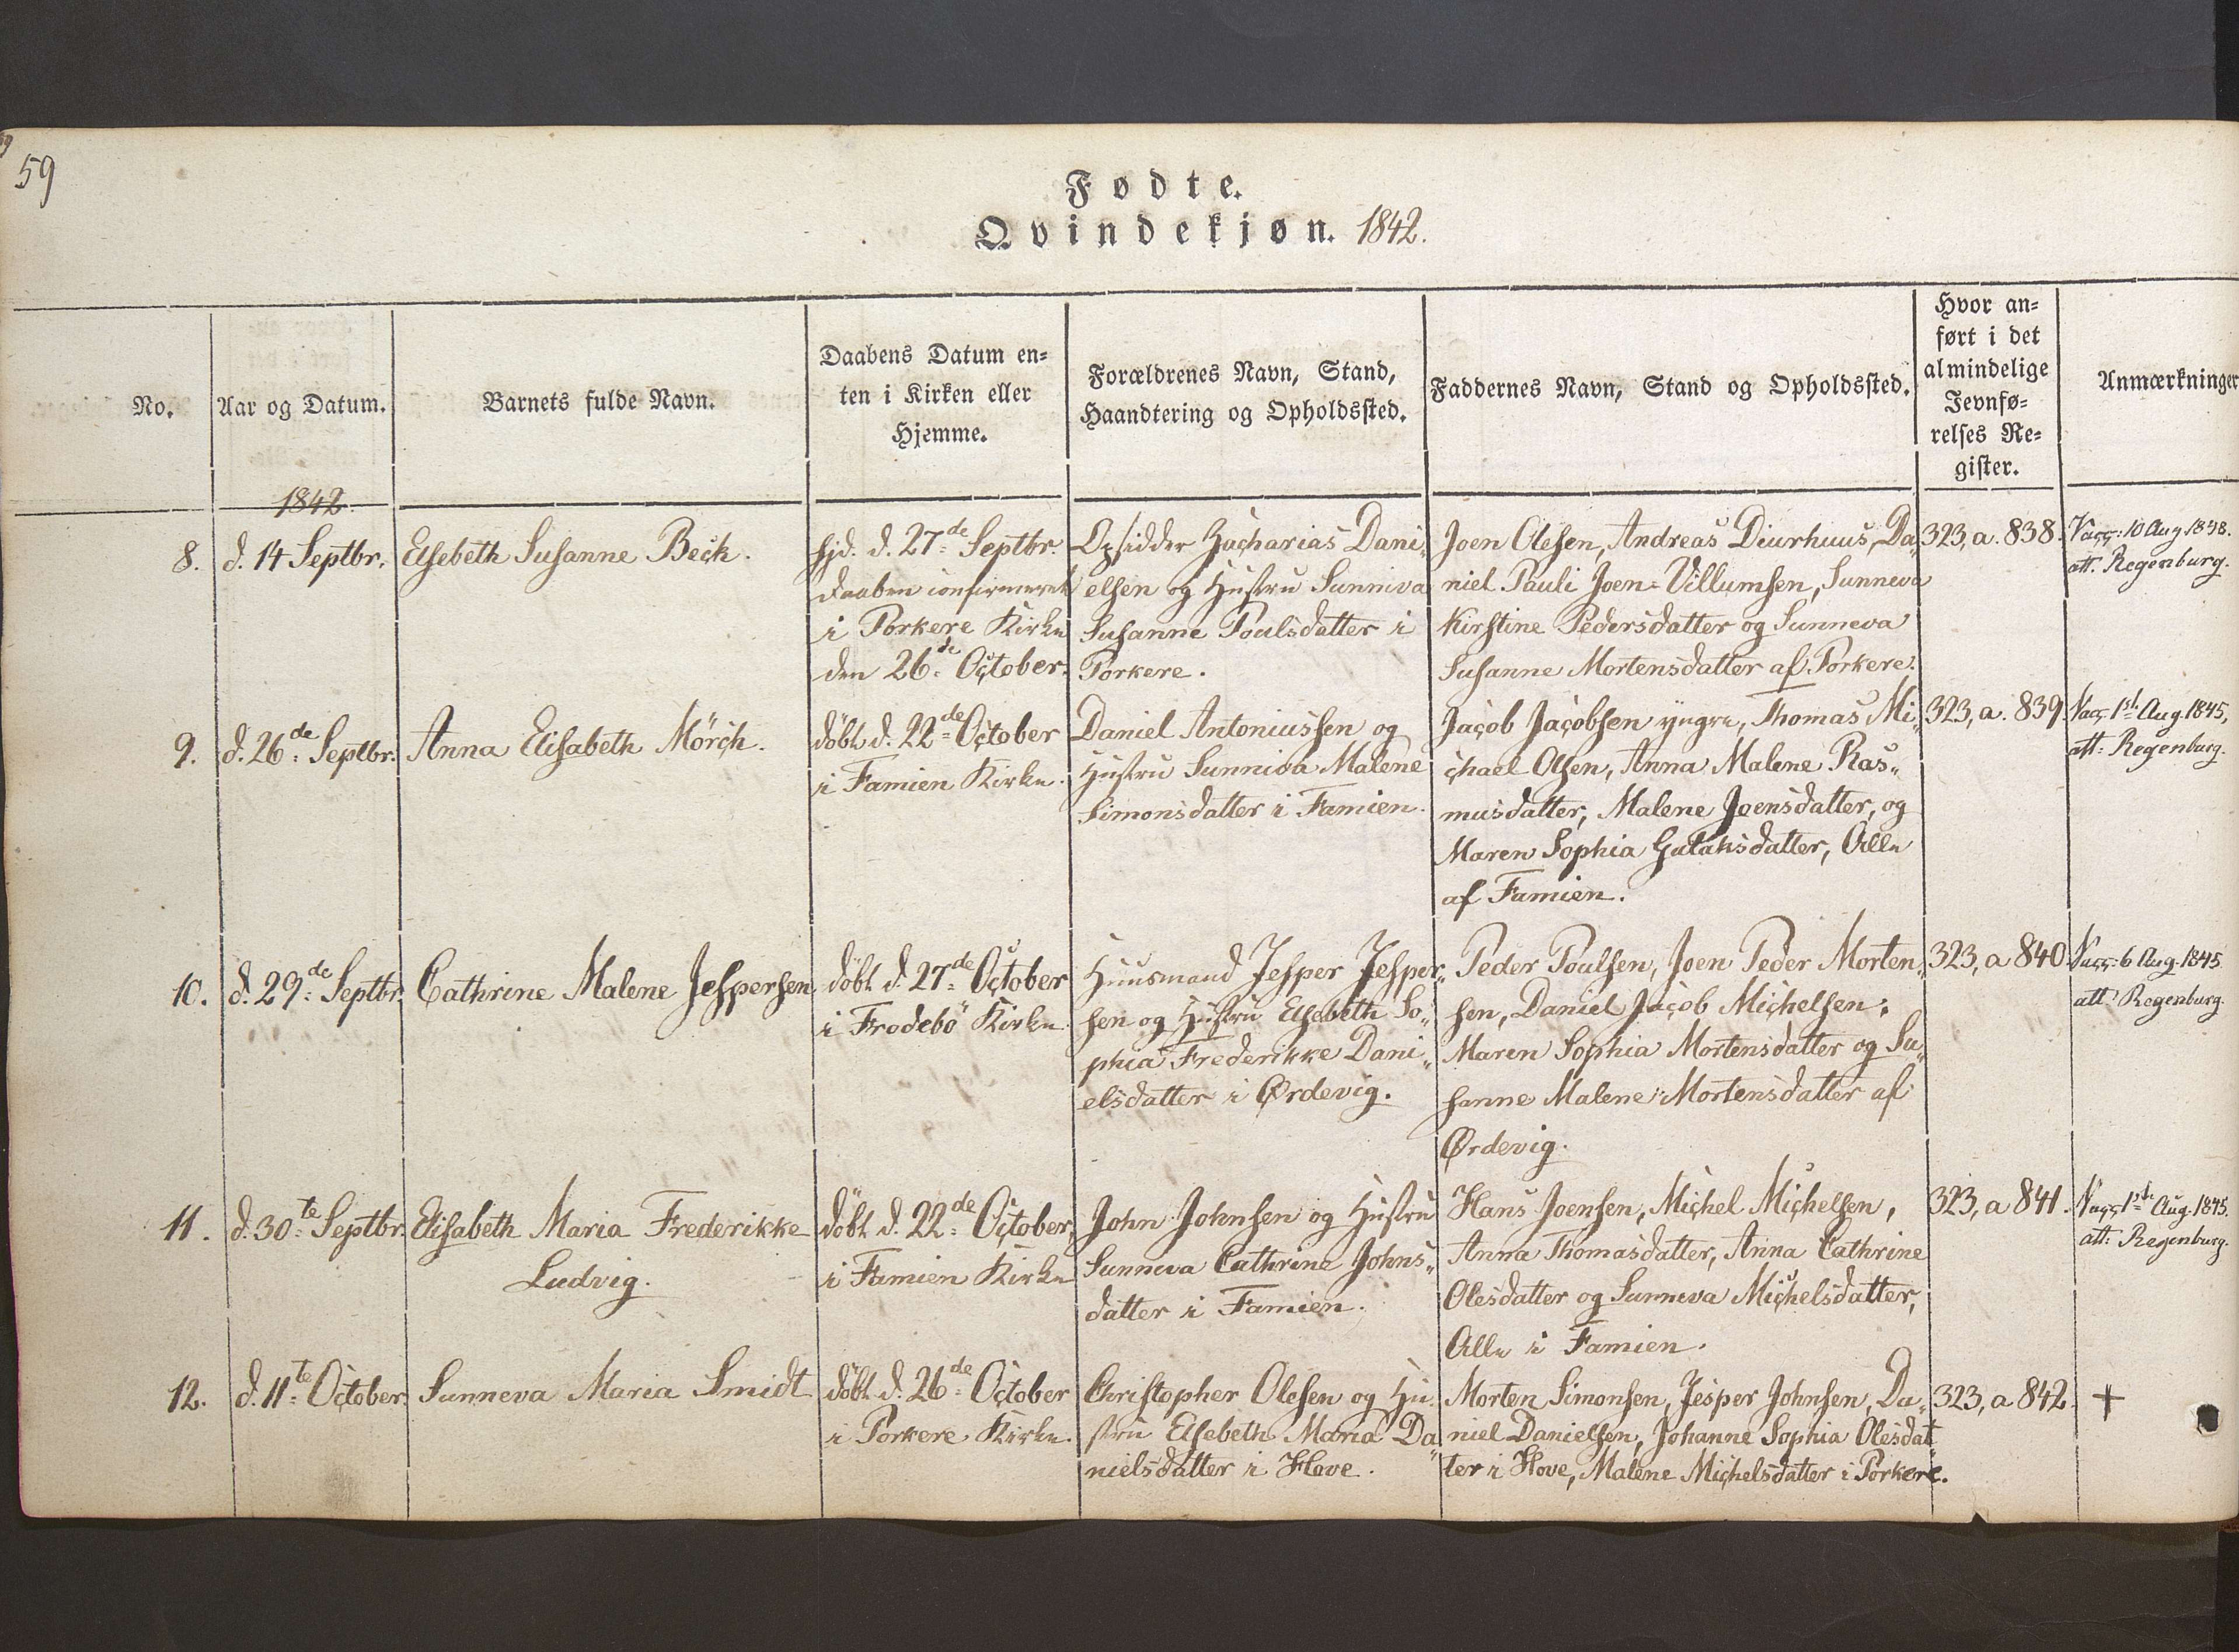 59
Fødte.
Qvindekjøn. 1842.
No.
Aar og Datum.
Barnets fulde Navn.
Daabens Datum en-
ten i Kirken eller
Hjemme.
Forældrenes Navn, Stand,
Haandtering og Opholdssted.
Faddernes Navn, Stand og Opholdssted.
Hvor an-
ført i det
almindelige
Jevnfø-
relses Re-
gister.
Anmærkninger
1842.
8.
d. 14 Septbr.
Elsebeth Susanne Beck.
hjd. d. 27de Septbr.
daaben confirmeret
i Porkere Kirke
den 26de October.
Opsidder Zacharias Dani-
elsen og Hustru Sunniva
Susanne Poulsdatter i
Porkere.
Joen Olesen, Andreas Diurhuus, Da-
niel Pauli Joen-Villumsen, Sunneva
Kirstine Pedersdatter og Sunneva
Susanne Mortensdatter af Porkere.
323, a. 838.
Vacc: 10 Aug 1848.
att. Regenburg.
9.
d. 26de Septbr.
Anna Elisabeth Mörch.
döbt d. 22de October
i Famien Kirke.
Daniel Antoniussen og
Hustru Sunniva Malene
Simonsdatter i Famien.
Jacob Jacobsen yngre, Thomas Mi-
chael Olsen, Anna Malene Ras-
musdatter, Malene Joensdatter, og
Maren Sophia Gutaksdatter, Alle
af Famien.
323, a. 839.
Vacc. 1ste Aug. 1845,
att: Regenburg.
10.
d. 29de Septbr.
Cathrine Malene Jespersen
döbt d. 27de October
i Frodebö Kirke.
Huusmand Jesper Jesper-
sen og Hustru Elsebeth So-
phia Frederikke Dani-
elsdatter i Ørdevig.
Peder Poulsen, Joen Peder Morten-
sen, Daniel Jacob Michelsen,
Maren Sophia Mortensdatter og Su-
sanne Malene Mortensdatter af
Ørdevig.
323, a 840
Vacc: 6 Aug. 1845
att: Regenburg.
11.
d. 30te Septbr.
Elisabeth Maria Frederikke
Ludvig.
döbt d. 22de October,
i Famien Kirke
John Johnsen og Hustru
Sunneva Cathrine Johns-
datter i Famien.
Hans Joensen, Michel Michelsen,
Anna Thomasdatter, Anna Cathrine
Olesdatter og Sunneva Michelsdatter,
Alle i Famien.
323, a 841.
Vacc 1ste Aug. 1845.
att: Regenburg.
12.
d. 11te October.
Sunneva Maria Smidt
döbt d. 26de October
i Porkere Kirke.
Christopher Olesen og Hu-
stru Elsebeth Maria Da-
nielsdatter i Hove.
Morten Simonsen, Jesper Johnsen, Da-
niel Danielsen, Johanne Sophia Olesdat-
ter i Hove, Malene Michelsdatter i Porkere.
323, a 842.
+